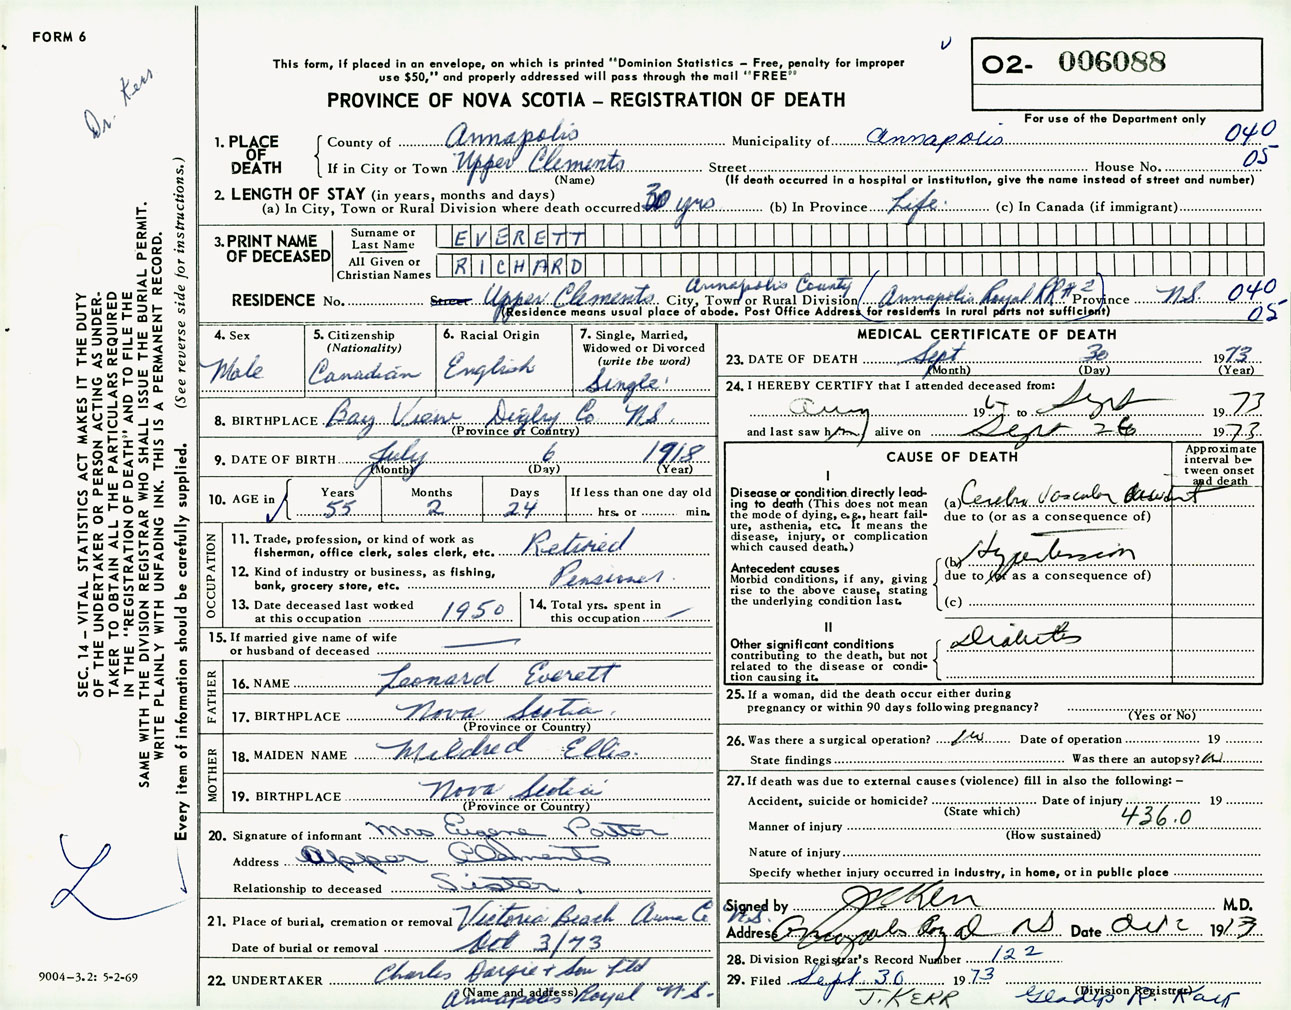 FORM 6
Dr. Kerr
This form, if placed in an envelope, on which is printed "Dominion Statistics - Free, penalty for improper
use $50," and properly addressed will pass through the mail "FREE"
PROVINCE OF NOVA SCOTIA - REGISTRATION OF DEATH
O2- 006088
For use of the Department only
1. PLACE OF DEATH
County of Annapolis Municipality of Annapolis 040
If in City or Town Upper Clements Street House No. 05
(Name) (If death occurred in a hospital or institution, give the name instead of street and number)
2. LENGTH OF STAY (in years, months and days)
(a) In City, Town or Rural Division where death occurred 30 yrs (b) In Province Life. (c) In Canada (if immigrant)
3. PRINT NAME OF DECEASED
Surname or Last Name EVERETT
All Given or Christian Names RICHARD
RESIDENCE No. Street Upper Clements. City, Town or Rural Division Annapolis County (Annapolis Royal RR#2) Province N.S. 040
(Residence means usual place of abode. Post Office Address for residents in rural parts not sufficient) 05
4. Sex Male
5. Citizenship (Nationality) Canadian
6. Racial Origin English
7. Single, Married, Widowed or Divorced (write the word) Single.
8. BIRTHPLACE Bay View Digby Co N.S.
(Province or Country)
9. DATE OF BIRTH July 6 1918
(Month) (Day) (Year)
10. AGE in Years 55 Months 2 Days 24 If less than one day old hrs. or min.
OCCUPATION
11. Trade, profession, or kind of work as fisherman, office clerk, sales clerk, etc. Retired
12. Kind of industry or business, as fishing, bank, grocery store, etc. Pensioner.
13. Date deceased last worked at this occupation 1950
14. Total yrs. spent in this occupation —
15. If married give name of wife or husband of deceased —
FATHER
16. NAME Leonard Everett
17. BIRTHPLACE Nova Scotia.
(Province or Country)
MOTHER
18. MAIDEN NAME Mildred Ellis.
19. BIRTHPLACE Nova Scotia
(Province or Country)
20. Signature of informant Mrs Eugene Potter
Address Upper Clements
Relationship to deceased Sister.
21. Place of burial, cremation or removal Victoria Beach Anna Co N.S.
Date of burial or removal Oct 3/73
22. UNDERTAKER Charles Dargie + Son Ltd
(Name and address) Annapolis Royal N.S.
MEDICAL CERTIFICATE OF DEATH
23. DATE OF DEATH Sept 30 1973
(Month) (Day) (Year)
24. I HEREBY CERTIFY that I attended deceased from:
Aug 196 to Sept 1973
and last saw him alive on Sept 26 1973.
CAUSE OF DEATH
Approximate interval between onset and death
I
Disease or condition directly leading to death (This does not mean the mode of dying, e.g., heart failure, asthenia, etc. It means the disease, injury, or complication which caused death.)
(a) Cerebro Vascular accident
due to (or as a consequence of)
Antecedent causes
Morbid conditions, if any, giving rise to the above cause, stating the underlying condition last.
(b) Hypertension
due to (or as a consequence of)
(c)
II
Other significant conditions
contributing to the death, but not related to the disease or condition causing it.
Diabetes
25. If a woman, did the death occur either during
pregnancy or within 90 days following pregnancy?
(Yes or No)
26. Was there a surgical operation? no Date of operation 19
State findings Was there an autopsy? no
27. If death was due to external causes (violence) fill in also the following: -
Accident, suicide or homicide? Date of injury 19
(State which) 436.0
Manner of injury
(How sustained)
Nature of injury
Specify whether injury occurred in industry, in home, or in public place
Signed by J Kerr M.D.
Address Annapolis Royal NS Date Oct 2 1973
28. Division Registrar's Record Number 122
29. Filed Sept. 30 1973
(Division Registrar)
J. KERR
SEC. 14 - VITAL STATISTICS ACT MAKES IT THE DUTY
OF THE UNDERTAKER OR PERSON ACTING AS UNDER-
TAKER TO OBTAIN ALL THE PARTICULARS REQUIRED
IN THE "REGISTRATION OF DEATH" AND TO FILE THE
SAME WITH THE DIVISION REGISTRAR WHO SHALL ISSUE THE BURIAL PERMIT.
WRITE PLAINLY WITH UNFADING INK. THIS IS A PERMANENT RECORD.
Every item of information should be carefully supplied. (See reverse side for instructions.)
9004-3.2: 5-2-69